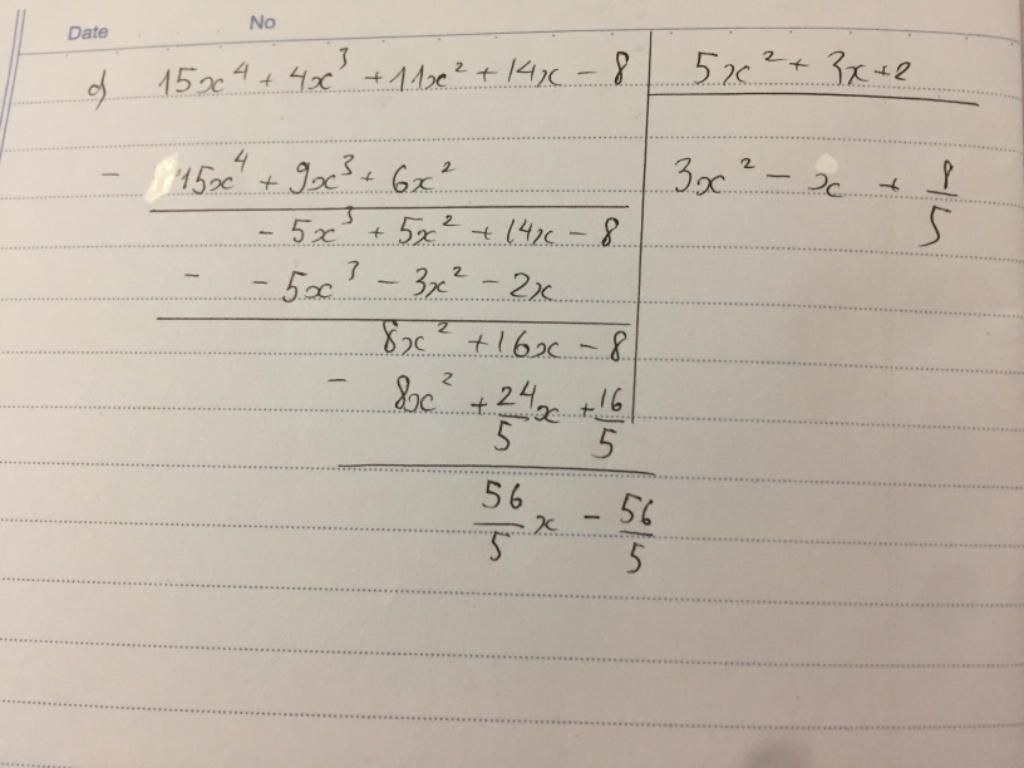 Date No
d) 15x⁴ + 4x³ + 11x² + 14x - 8 | 5x² + 3x + 2
- 15x⁴ + 9x³ + 6x² 3x² - x + 8/5
- 5x³ + 5x² + 14x - 8
- - 5x³ - 3x² - 2x
8x² + 16x - 8
- 8x² + 24/5 x + 16/5
56/5 x - 56/5